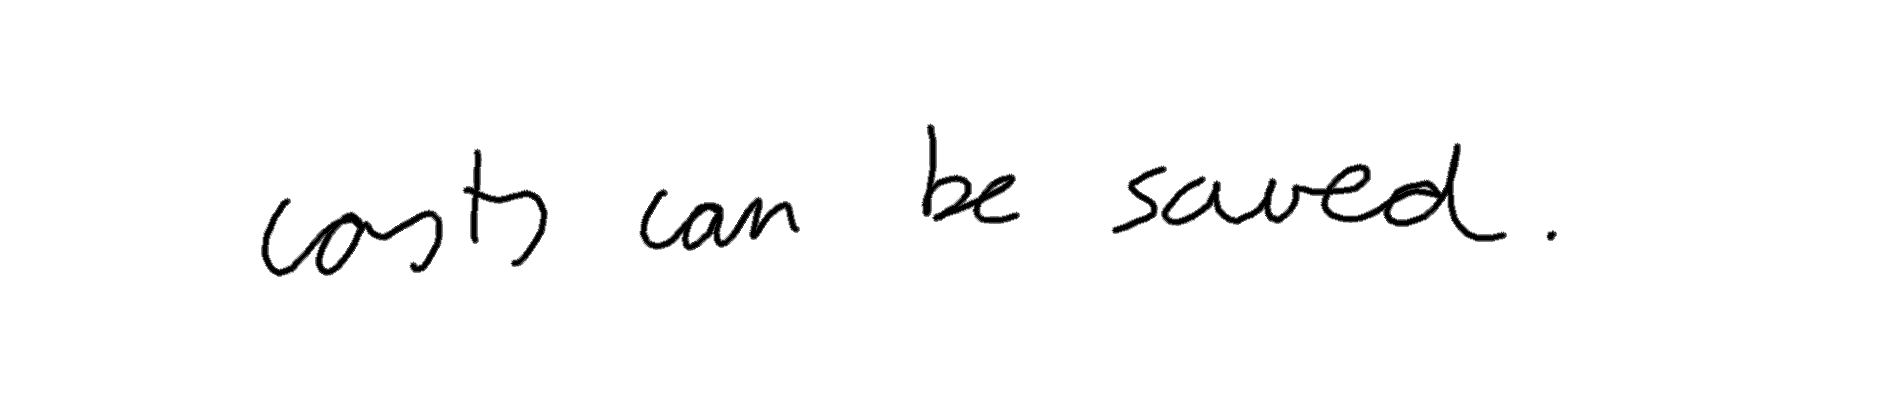 costs can be saved.